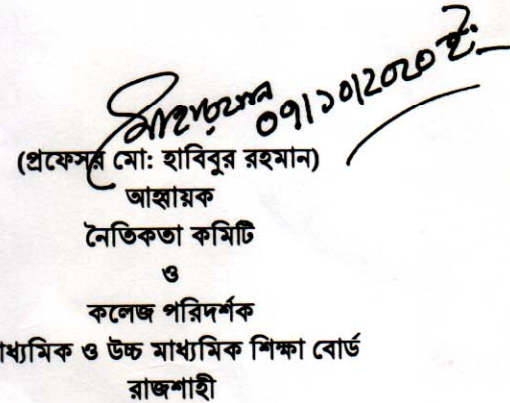 ০৭/১০/২০২০ ইং
(প্রফেসর মো: হাবিবুর রহমান)
আহ্বায়ক
নৈতিকতা কমিটি
ও
কলেজ পরিদর্শক
মাধ্যমিক ও উচ্চ মাধ্যমিক শিক্ষা বোর্ড
রাজশাহী